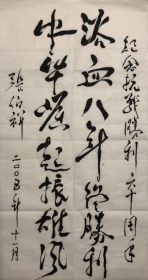 纪念抗战胜利六十周年
浴血八年终胜利
中华崛起振雄风
张伯祥
二〇〇五年十一月